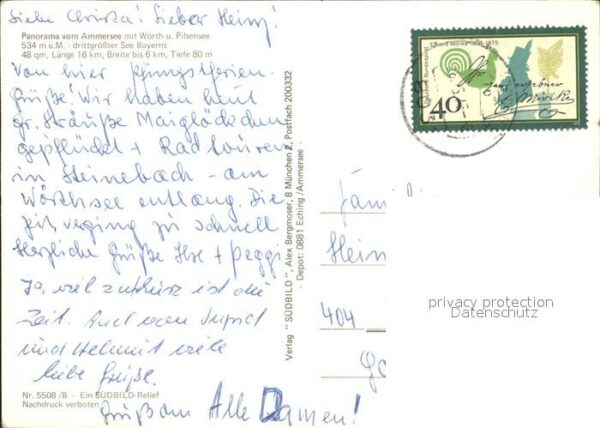 Liebe Christa! Lieber Heinz!
Panorama vom Ammersee mit Wörth- u. Pilsensee
534 m ü.M. - drittgrößter See Bayerns
48 qm, Länge 16 km, Breite bis 6 km, Tiefe 80 m
Von hier Pfingstferien-
Grüße! Wir haben heut
gr. Sträuße Maiglöckchen
gepflückt + Radtouren
in Steinebach - am
Wörthsee entlang. Die
Zeit verging zu schnell
Herzliche Grüße Ilse + Peggi
Ja, viel zu kurz ist die
Zeit. Auch von
und Helmut viele
liebe Grüße.
Nr. 5508/B - Ein SÜDBILD-Relief
Nachdruck verboten
Grüß an Alle Damen!
Verlag "SÜDBILD", Alex Bergmoser, 8 München 2, Postfach 200332
- Depot: 0881 Eching/Ammersee -
Deutsche Bundespost Eduard Mörike 1804-1875
40
Fami
Hein
404
privacy protection
Datenschutz